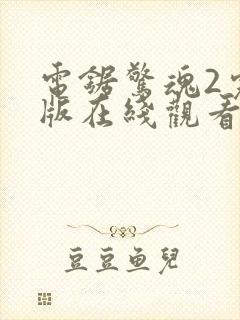 電鋸驚魂2
版在綫觀看
豆豆鱼兒